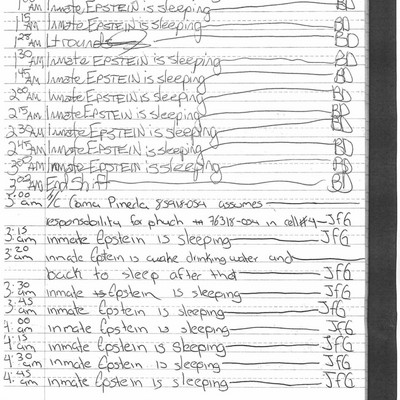 AM Inmate EPSTEIN is sleeping BD
1:15 AM Inmate EPSTEIN is sleeping BD
AM rounds BD
1:30 AM Inmate EPSTEIN is sleeping BD
1:45 AM Inmate EPSTEIN is sleeping BD
2:00 AM Inmate EPSTEIN is sleeping BD
2:15 AM Inmate EPSTEIN is sleeping BD
2:30 AM Inmate EPSTEIN is sleeping BD
2:45 AM Inmate EPSTEIN is sleeping BD
3:00 AM Inmate EPSTEIN is sleeping BD
AM End Shift BD
3:00 am I/C Pineda assumes
responsibility for 76318-054 in cell #4 JfG
3:15 am inmate Epstein is sleeping JfG
3:20 am inmate Epstein is awake drinking water and
back to sleep after that JfG
3:30 am inmate Epstein is sleeping JfG
3:45 am inmate Epstein is sleeping JfG
4:00 am inmate Epstein is sleeping JfG
4:15 am inmate Epstein is sleeping JfG
4:30 am inmate Epstein is sleeping JfG
4:45 am inmate Epstein is sleeping JfG